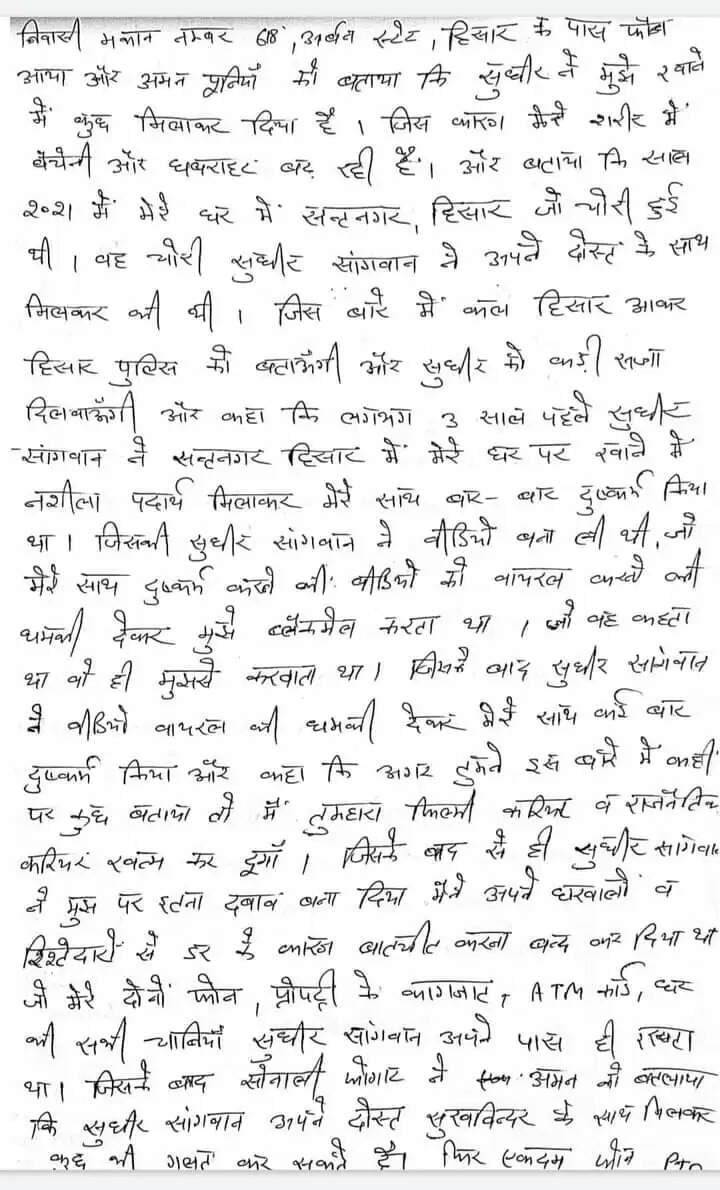 निवासी मकान नम्बर 618, अर्बन स्टेट, हिसार के पास फोन
आया और अमन पूनियाँ को बताया कि सुधीर ने मुझे खाने
में कुछ मिलाकर दिया है । जिस कारण मेरे शरीर में
बेचेनी और घबराहट बढ़ रही है । और बताया कि साल
२०२१ में मेरे घर में सन्तनगर, हिसार जो चोरी हुई
थी । वह चोरी सुधीर सांगवान ने अपने दोस्त के साथ
मिलकर की थी । जिस बारे में कल हिसार आकर
हिसार पुलिस को बताऊँगी और सुधीर को कड़ी सजा
दिलवाऊँगी और कहा कि लगभग 3 साल पहले सुधीर
सांगवान ने सन्तनगर हिसार में मेरे घर पर खाने में
नशीला पदार्थ मिलाकर मेरे साथ बार-बार दुष्कर्म किया
था । जिसकी सुधीर सांगवान ने वीडियो बना ली थी, जो
मेरे साथ दुष्कर्म करने की वीडियो को वायरल करने की
धमकी देकर मुझे ब्लैकमेल करता था । जो वह कहता
था वो ही मुझसे करवाता था । जिसके बाद सुधीर सांगवान
ने वीडियो वायरल की धमकी देकर मेरे साथ कई बार
दुष्कर्म किया और कहा कि अगर तुमने इस बारे में कहीं
पर कुछ बताया तो मैं तुम्हारा फिल्मी करियर व राजनैतिक
करियर खत्म कर दूगाँ । जिसके बाद से ही सुधीर सांगवान
ने मुझ पर इतना दबाव बना दिया मैंने अपने घरवालों व
रिश्तेदारों से डर के कारण बातचीत करना बन्द कर दिया था
जो मेरे दोनों फोन, प्रोपर्टी के कागजात, ATM कार्ड, घर
की सभी चाबियाँ सुधीर सांगवान अपने पास ही रखता
था । जिसके बाद सोनाली फोगाट ने अमन को बतलाया
कि सुधीर सांगवान अपने दोस्त सुखविन्दर के साथ मिलकर
कुछ भी गलत कर सकते है । फिर एकदम फोन PTO